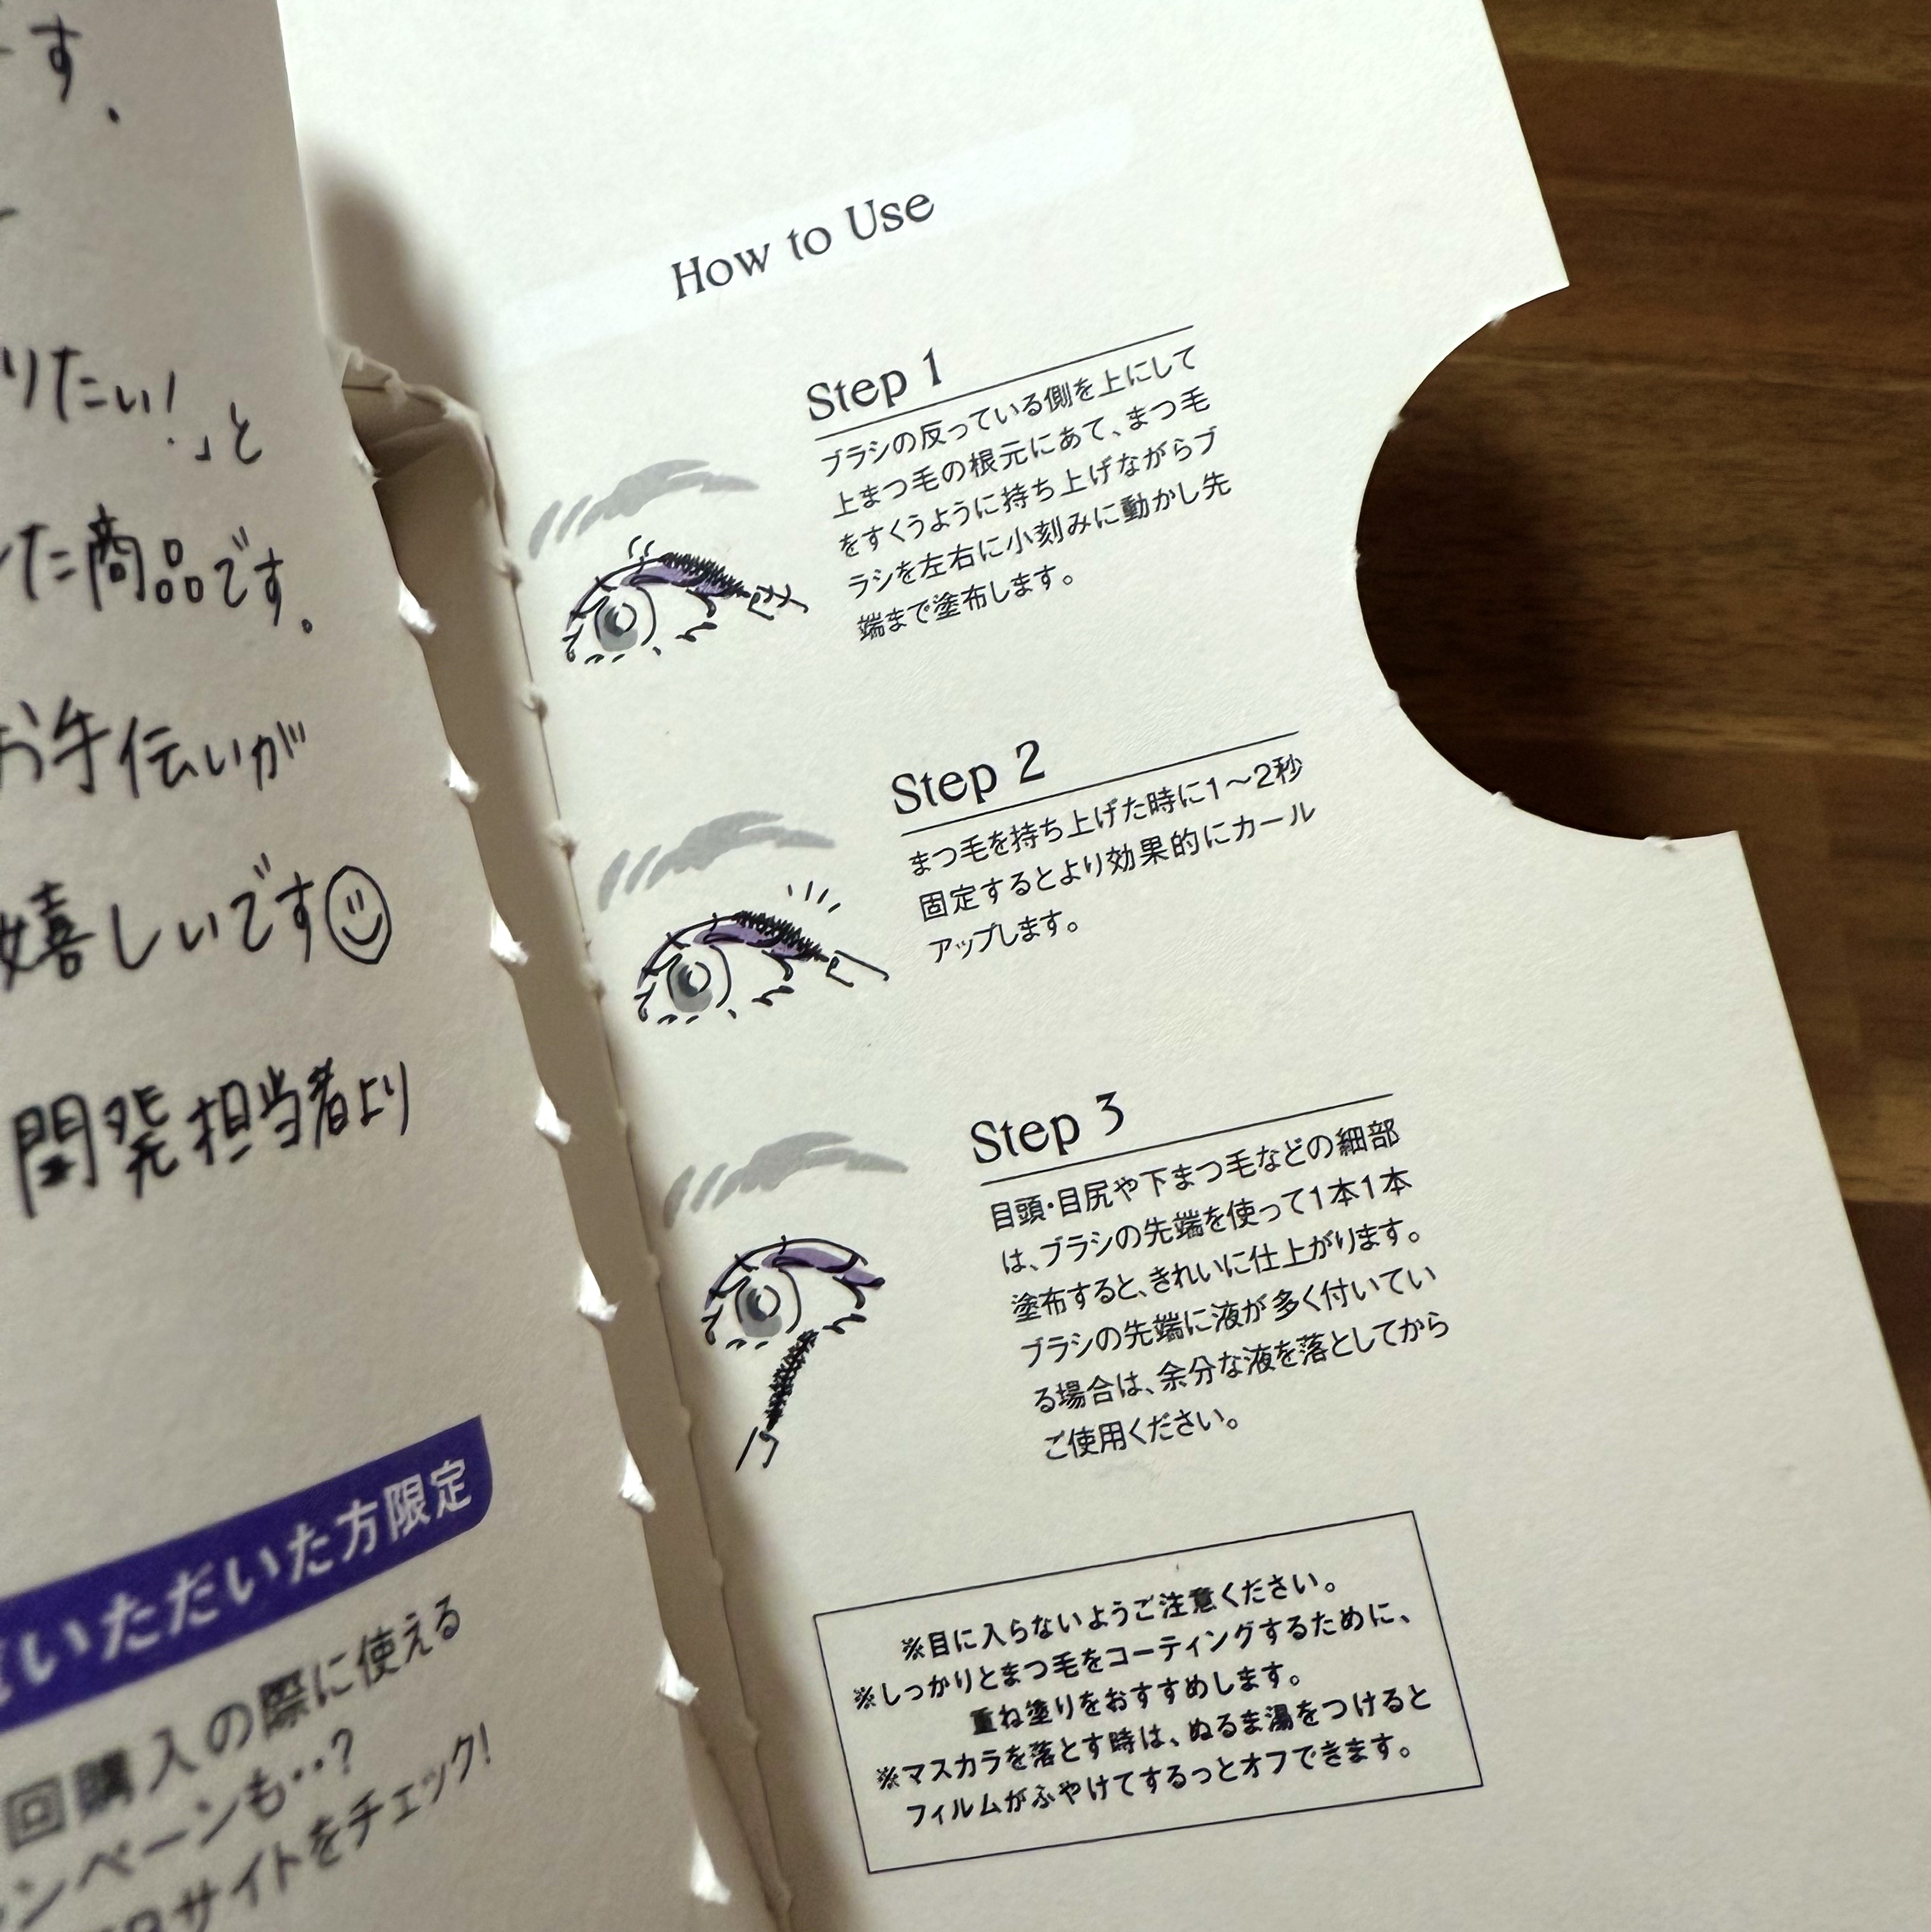 す.
りたい!」と
た商品です。
お手伝いが
嬉しいです
開発担当者より
いただいた方限定
回購入の際に使える
ンペーンも‥?
サイトをチェック!
How to Use
Step 1
ブラシの反っている側を上にして
上まつ毛の根元にあて、まつ毛
をすくうように持ち上げながらブ
ラシを左右に小刻みに動かし先
端まで塗布します。
Step 2
まつ毛を持ち上げた時に1～2秒
固定するとより効果的にカール
アップします。
Step 3
目頭・目尻や下まつ毛などの細部
は、ブラシの先端を使って1本1本
塗布すると、きれいに仕上がります。
ブラシの先端に液が多く付いてい
る場合は、余分な液を落としてから
ご使用ください。
※目に入らないようご注意ください。
※しっかりとまつ毛をコーティングするために、
重ね塗りをおすすめします。
※マスカラを落とす時は、ぬるま湯をつけると
フィルムがふやけてするっとオフできます。